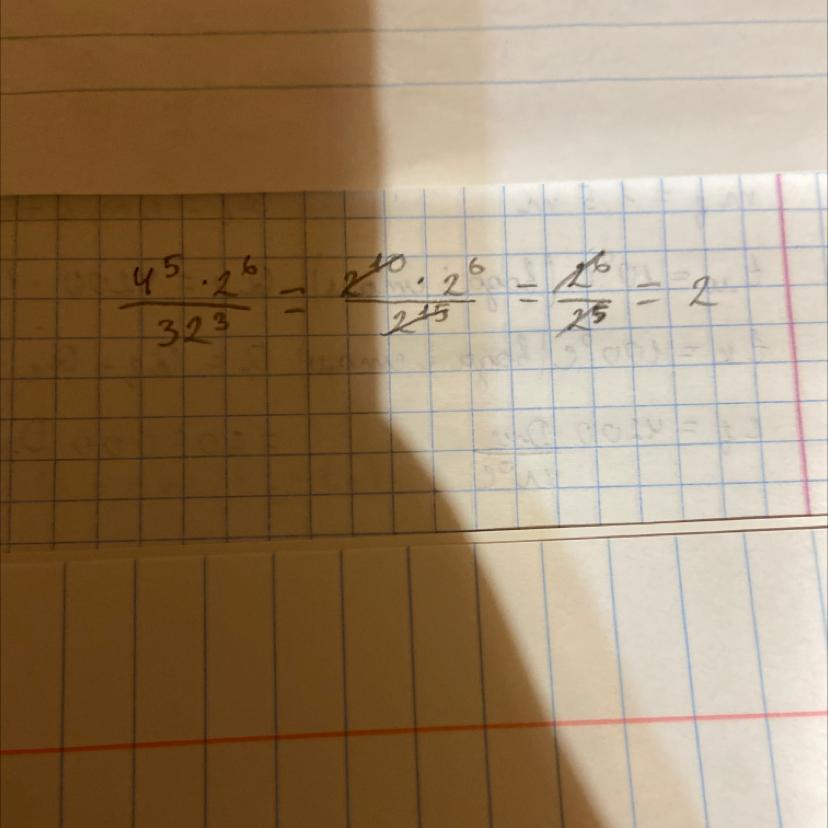 4⁵ · 2⁶ / 32³ = 2¹⁰ · 2⁶ / 2¹⁵ = 2⁶ / 2⁵ = 2